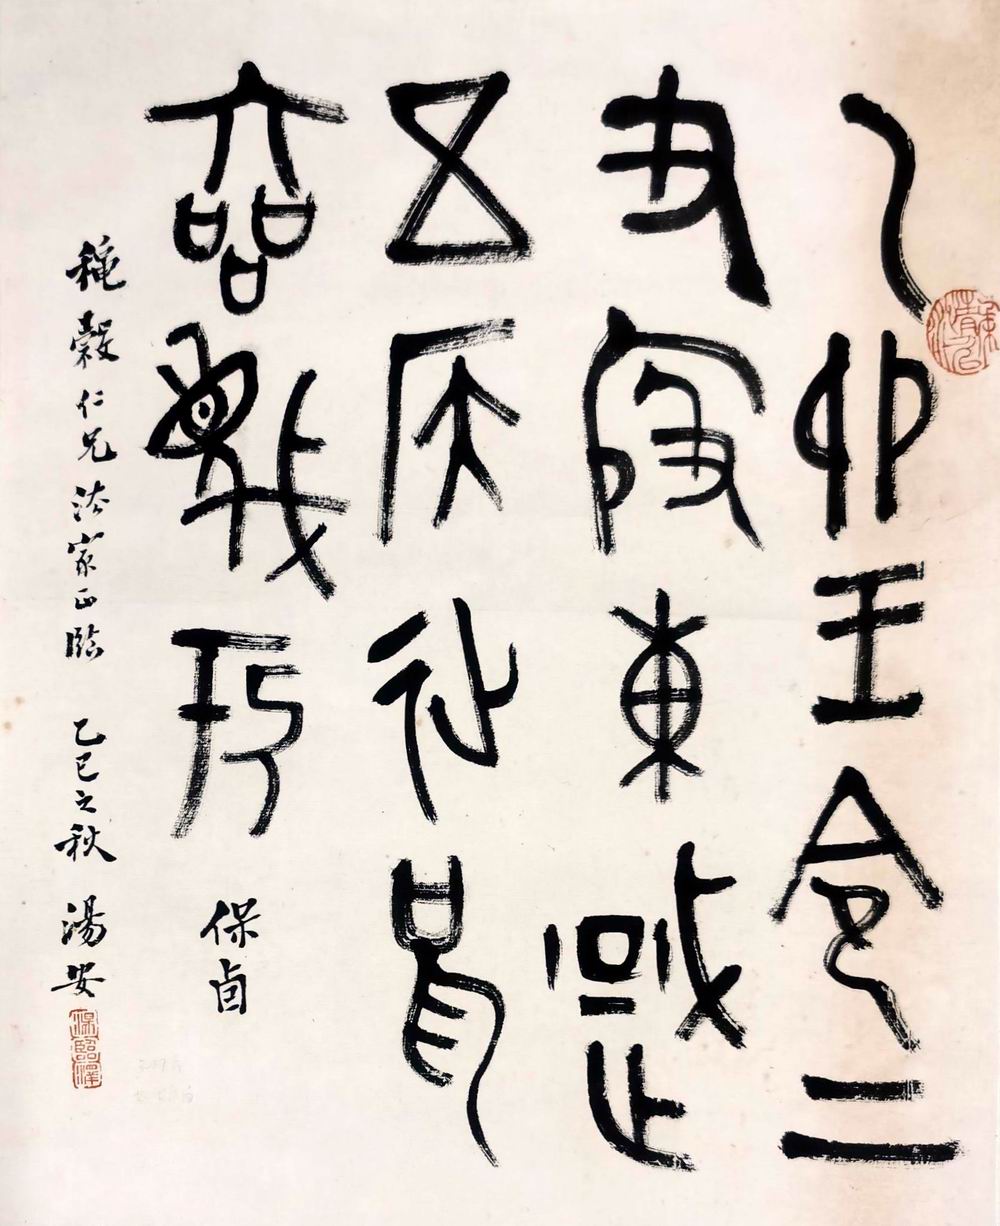 乙卯王令二
及殷東或
五侯征兄
六品蔑于
保卣
穐穀仁兄法家正臨 乙巳之秋 湯安
湯臨澤